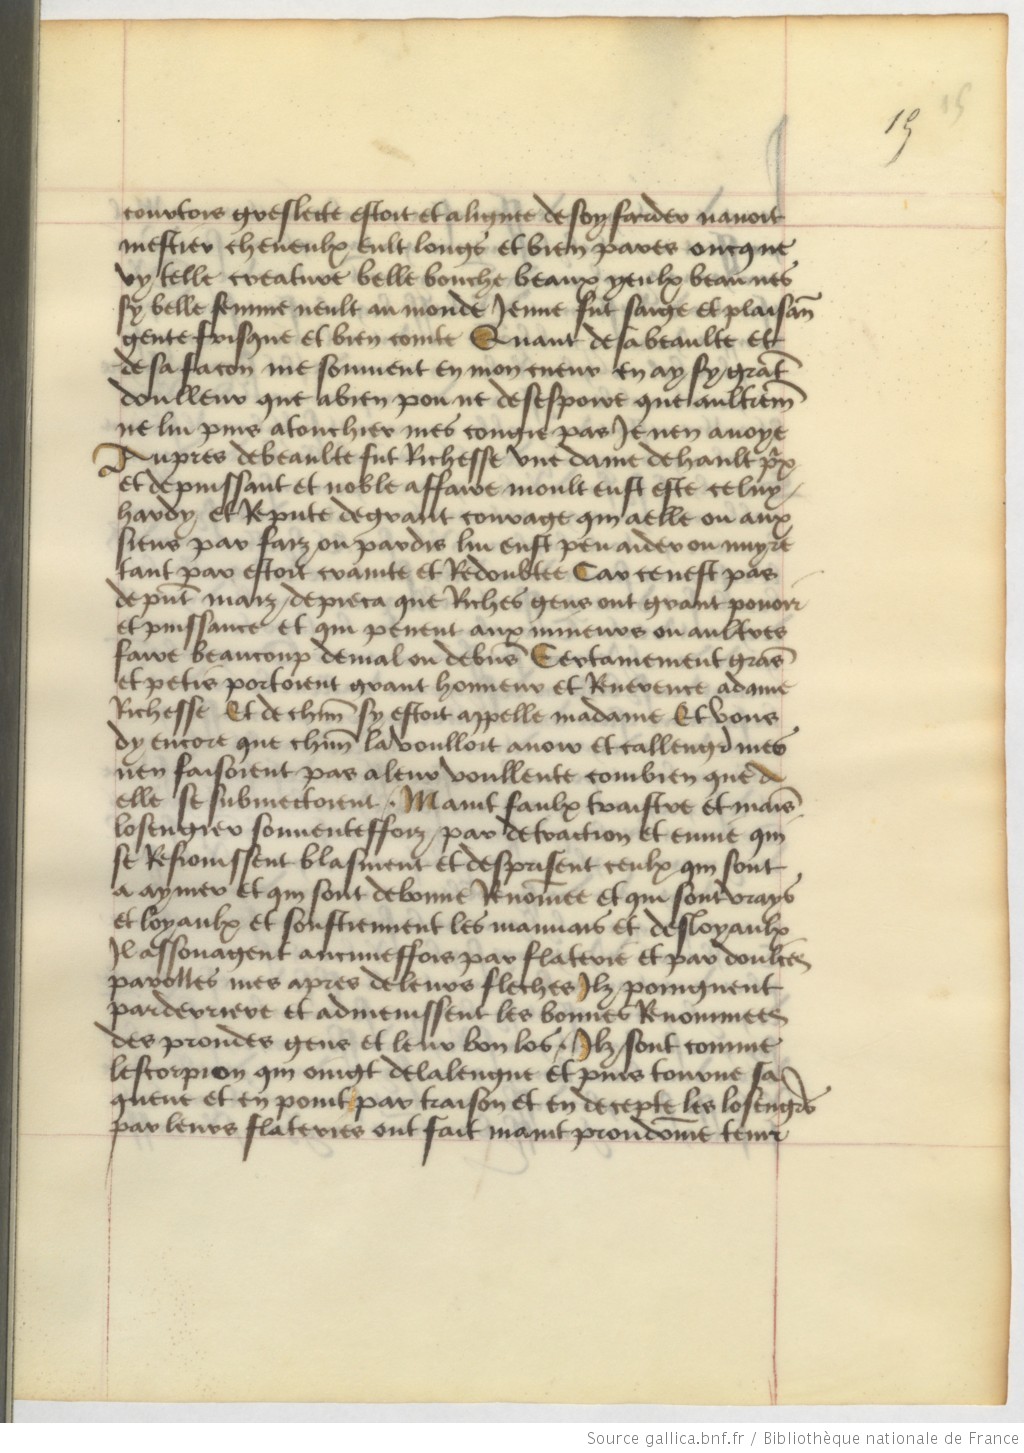 15 15
courtois greslecte estoit et alignee de soy farder navoit
mestier cheveulx eult longs et bien pares oncque
vy telle creature belle bouche beaux yeulx beau nes
sy belle femme neult au monde Jenne fut saige et plaisan̄
gente frisque et bien cointe Quant de sa beaulte et
de sa facon me souvient en mon cueur en ay sy grāt
doulleur que a bien pou ne desespoire que aultrem̄
ne lui puis atouchier mes congie pas Je nen avoye
Aupres de beaulte fut Richesse une dame de hault pris
et de puissant et noble affaire moult eust este celuy
hardy et Repute de grant courage qui a elle ou aux
siens par faiz ou par dis lui eust peu aider ou nuyre
tant par estoit crainte et Redoubtee Car ce nest pas
de put̄ maiz de pieca que Riches gens ont grant povoir
et puissance et qui peuent aux mineurs ou aultres
faire beaucoup de mal ou de biens Certainement grās
et petis portoient grant honneur et Reverence a dame
Richesse Et de chun̄ sy estoit appelle madame Et vous
dy encore que chun̄ la voulloit avoir et callenger mes
nen faisoient pas a leur voullente combien que a
elle se submectoient . Maint faulx traistre et mais
losengier souventeffoiz par detraction et envie qui
se Resioissent blasment et desprisent ceulx qui sont
a aymer et qui sont de bonne Renōmee et qui sont vrays
et loyaulx et soustiennent les mauvais et desloyaulx
Jl assouagent aucuneffois par flaterie et par doulces
parolles mes apres de leurs fleches Jlz poingnent
par derriere et admenissent les bonnes Renommees
des proudes gens et leur bon los . Jlz sont comme
lescorpion qui oingt de la lengue et puis tourne sa
queue et en point par traison et en decepte les losengers
par leurs flateries ont fait maint proudōme tenir
Source gallica.bnf.fr / Bibliothèque nationale de France